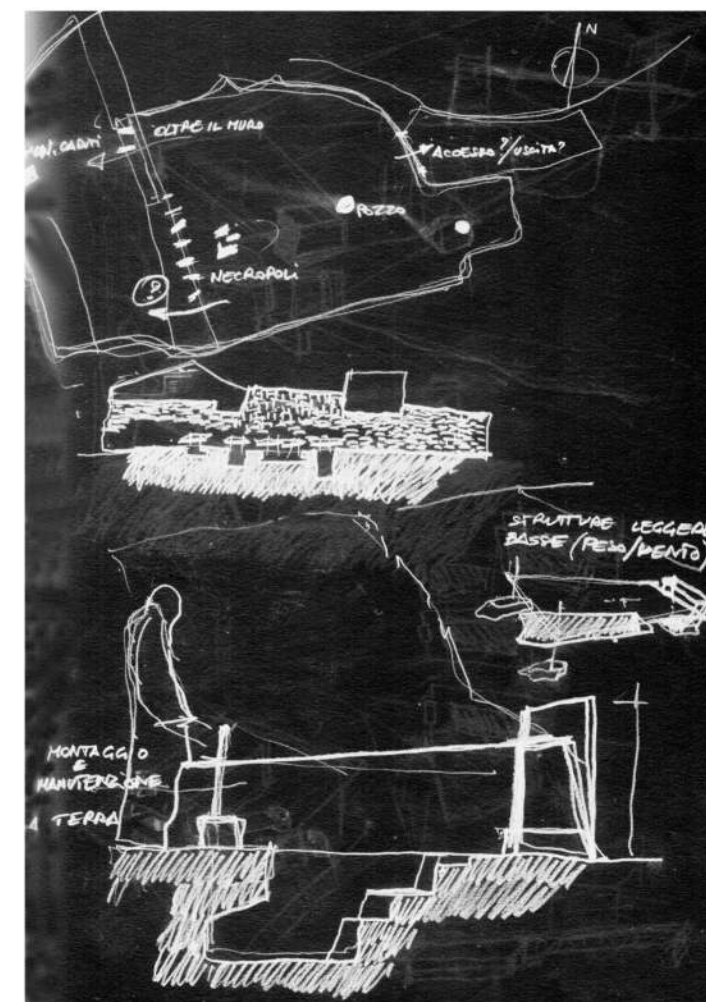 N
OLTRE IL MURO
MON. CADUTI
ACCESSO?/USCITA?
POZZO
NECROPOLI
?
STRUTTURE LEGGERE
BASSE (PESO/VENTO)
MONTAGGIO
E
MANUTENZIONE
A TERRA